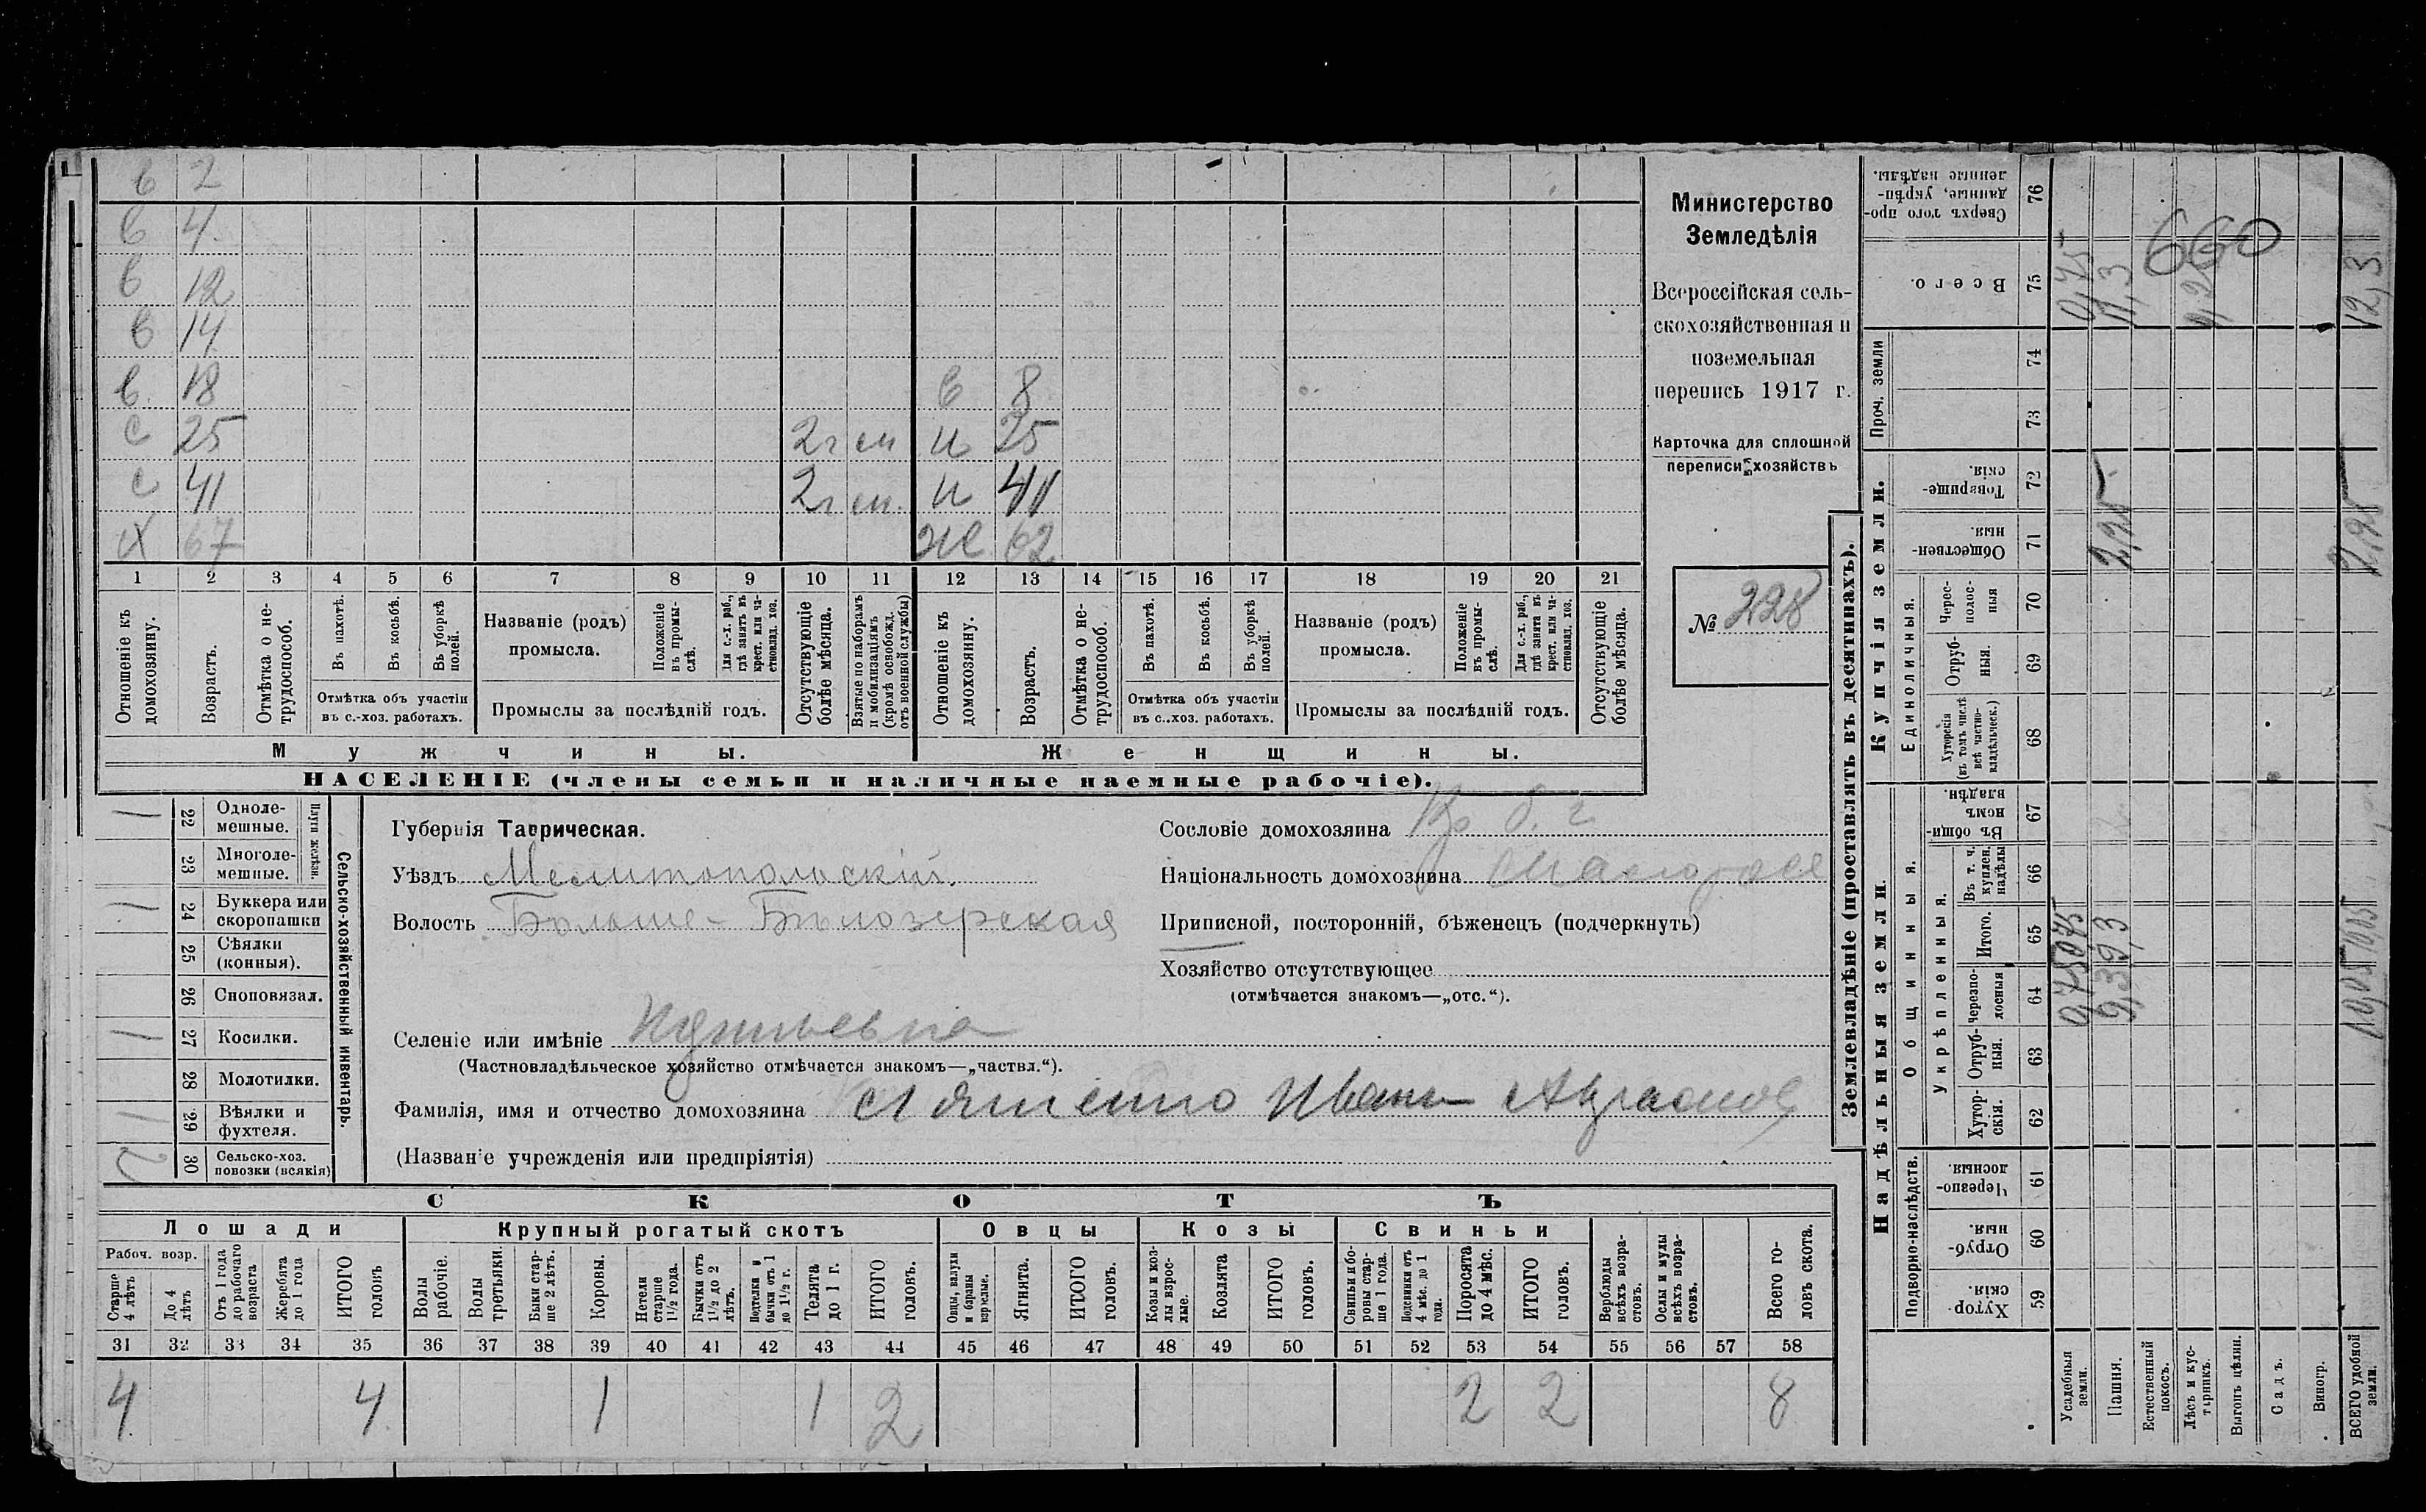 в 2
в 4
в 12
в 14
в 18 в 8
с 25 2г см н 25
с 41 2г см. н 41
х 67 же 62
1 2 3 4 5 6 7 8 9 10 11 12 13 14 15 16 17 18 19 20 21
Отношеніе къ домохозяину.
Возрастъ.
Отмѣтка о не-трудоспособ.
Въ пахотѣ.
Въ косьбѣ.
Въ уборкѣ полей.
Отмѣтка объ участіи
въ с.-хоз. работахъ.
Названіе (родъ)
промысла.
Положеніе въ промы-слѣ.
Для с.-х. раб., гдѣ занятъ въ крест. или ча-стновлад. хоз.
Промыслы за послѣдній годъ.
Отсутствующіе болѣе мѣсяца.
Взятые по наборамъ и мобилизаціямъ (кромѣ освобожд. отъ военной службы)
Отношеніе къ домохозяину.
Возрастъ.
Отмѣтка о не-трудоспособ.
Въ пахотѣ.
Въ косьбѣ.
Въ уборкѣ полей.
Отмѣтка объ участіи
въ с.-хоз. работахъ.
Названіе (родъ)
промысла.
Положеніе въ промы-слѣ.
Для с.-х. раб., гдѣ занята въ крест. или ча-стновлад. хоз.
Промыслы за послѣдній годъ.
Отсутствующіе болѣе мѣсяца.
Мужчины. Женщины.
НАСЕЛЕНІЕ (члены семьи и наличные наемные рабочіе).
Министерство
Земледѣлія
Всероссійская сель-
скохозяйственная и
поземельная
перепись 1917 г.
Карточка для сплошной
переписи хозяйствъ
№ 228
Сельско-хозяйственный инвентарь.
Плуги желѣзн.
1 22 Одноле-мешные.
23 Многоле-мешные.
1 24 Буккера или скоропашки
25 Сѣялки (конныя).
26 Сноповязал.
1 27 Косилки.
28 Молотилки.
1 29 Вѣялки и фухтеля.
2 30 Сельско-хоз. повозки (всякія)
Губернія Таврическая.
Уѣздъ Мелитопольскій.
Волость Больше-Бѣлозерская
Селеніе или имѣніе
(Частновладѣльческое хозяйство отмѣчается знакомъ—„частвл.“).
Фамилія, имя и отчество домохозяина Иванъ
(Названіе учрежденія или предпріятія)
Сословіе домохозяина Кр б. г.
Національность домохозяина Малоросс
Приписной, посторонній, бѣженецъ (подчеркнуть)
Хозяйство отсутствующее
(отмѣчается знакомъ—„отс.“).
СКОТЪ
Лошади Крупный рогатый скотъ Овцы Козы Свиньи
Рабоч. возр.
Старше 4 лѣтъ
До 4 лѣтъ
Отъ 1 года до рабочаго возраста
Жеребята до 1 года
ИТОГО головъ
Волы рабочіе.
Волы третьяки.
Быки стар-ше 2 лѣтъ.
Коровы.
Нетели старше 1½ года.
Бычки отъ 1½ до 2 лѣтъ.
Подтелки и бычки отъ 1 до 1½ г.
Телята до 1 г.
ИТОГО головъ.
Овцы, валухи и бараны взрослые.
Ягнята.
ИТОГО головъ.
Козы и коз-лы взрос-лые.
Козлята
ИТОГО головъ.
Свиньи и бо-ровы стар-ше 1 года.
Подсвинки отъ 4 мѣс. до 1 года.
Поросята до 4 мѣс.
ИТОГО головъ.
Верблюды всѣхъ возра-стовъ.
Ослы и мулы всѣхъ возра-стовъ.
Всего го-ловъ скота.
31 32 33 34 35 36 37 38 39 40 41 42 43 44 45 46 47 48 49 50 51 52 53 54 55 56 57 58
4 4 1 1 2 2 2 8
Землевладѣніе (проставлять въ десятинахъ).
Надѣльныя земли.
Купчія земли.
Проч. земли
Подворно-наслѣдств.
Общинныя.
Укрѣпленныя.
Единоличныя.
Хутор-скія. 59
Отруб-ныя. 60
Черезпо-лосныя. 61
Хутор-скія. 62
Отруб-ныя. 63
Черезпо-лосныя 64
Итого. 65
Въ т. ч. куплен. надѣлы 66
Въ общин-номъ владѣн. 67
Хуторскія (въ томъ числѣ всѣ частно-владѣльческ.) 68
Отруб-ныя. 69
Черес-полос-ныя 70
Обществен-ныя. 71
Товарище-скія. 72
73
74
Всего. 75
Сверхъ того про-данные, укрѣп-ленные надѣлы. 76
Усадебныя земли. 0,75 0,75
Пашня. 9,3 2,25 11,3
Естественный покосъ.
Лѣсъ и кус-тарникъ. 0,25
Выгонъ цѣлин.
Садъ.
Виногр.
ВСЕГО удобной земли. 10,05 2,25 12,3
660